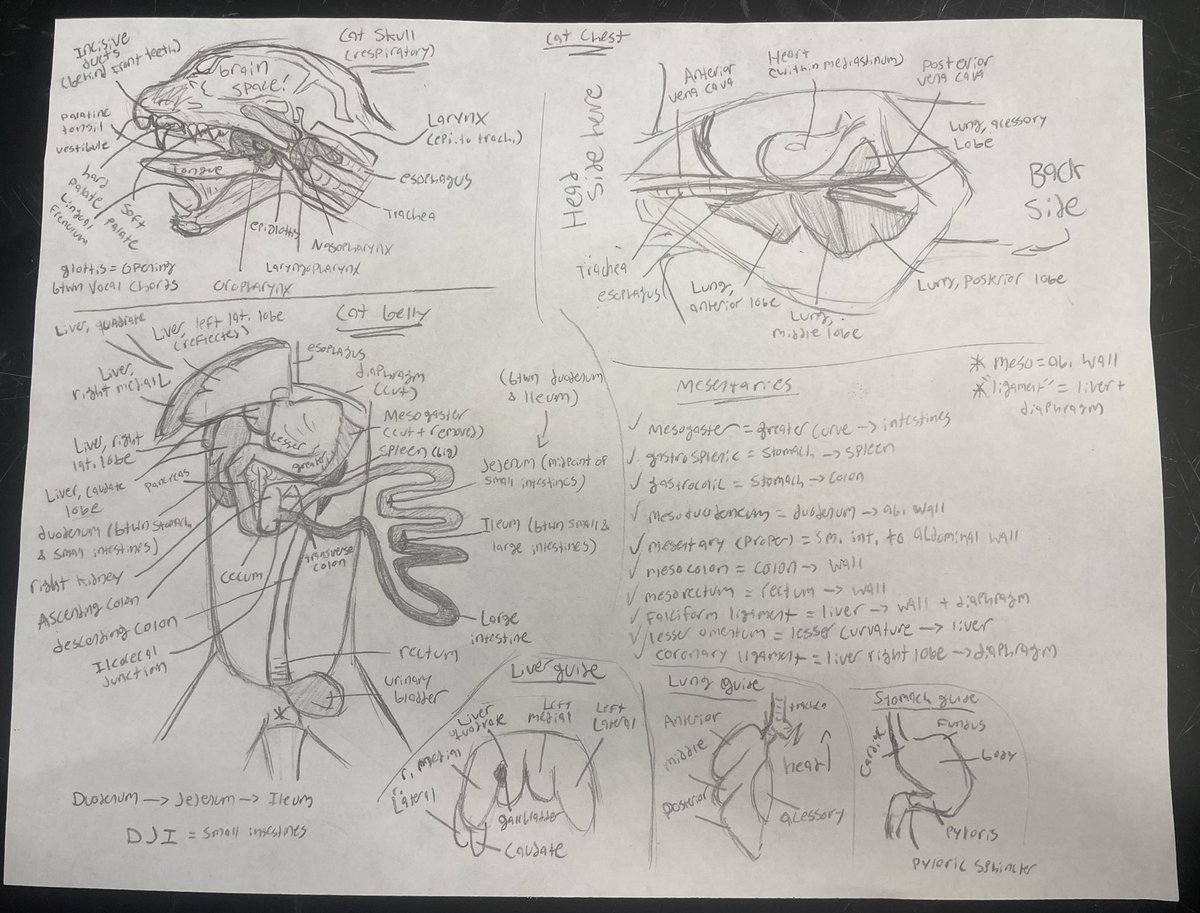 Cat Skull
(respiratory)
Incisive
ducts
(behind front teeth)
brain
space!
palatine
tonsil
vestibule
hard
palate
Lingeal
Frenulum
soft
palate
Tongue
Larynx
(epi. to trach.)
esophagus
Trachea
epiglottis
Nasopharynx
Laryngopharynx
oropharynx
glottis = opening
btwn vocal chords
Cat Chest
Head
Side here
Anterior
vena cava
Heart
(within mediastinum)
Posterior
vena cava
Lung, acessory
Lobe
Back
Side
Trachea
esophagus
Lung,
anterior lobe
Lung,
middle lobe
Lung, posterior lobe
Cat belly
Liver, quadrate
Liver, left lat. lobe
(reflected)
Liver,
right medial
esophagus
diaphragm
(cut)
Mesogaster
(cut + remove)
Spleen (big)
Lesser
greater
Liver, right
lat. lobe
Liver, caudate
lobe
pancreas
duodenum (btwn stomach
& small intestines)
right kidney
Ascending colon
descending colon
Ileocecal
junction
cecum
transverse
colon
(btwn duodenum
& Ileum)
Jejerum (midpoint of
small intestines)
Ileum (btwn small &
large intestines)
Large
intestine
rectum
urinary
bladder
Duodenum → Jejerum → Ileum
DJI = small intestines
* meso = ab. wall
* "ligament" = liver +
diaphragm
Mesentaries
✓ mesogaster = greater curve → intestines
✓ gastrosplenic = stomach → spleen
✓ gastrocolic = stomach → colon
✓ mesoduodeneum = duodenum → ab. wall
✓ mesentary (proper) = sm. int. to abdominal wall
✓ mesocolon = colon → wall
✓ mesorectum = rectum → wall
✓ Falciform ligament = liver → wall + diaphragm
✓ lesser omentum = lesser curvature → liver
✓ coronary ligament = liver right lobe → diaphragm
Liver guide
Liver
quadrate
Left
medial
Left
Lateral
r. medial
r.
Lateral
gallbladder
caudate
Lung guide
Anterior
middle
posterior
trachea
head
acessory
Stomach guide
Cardiac
Fundus
body
pyloris
pyloric sphincter